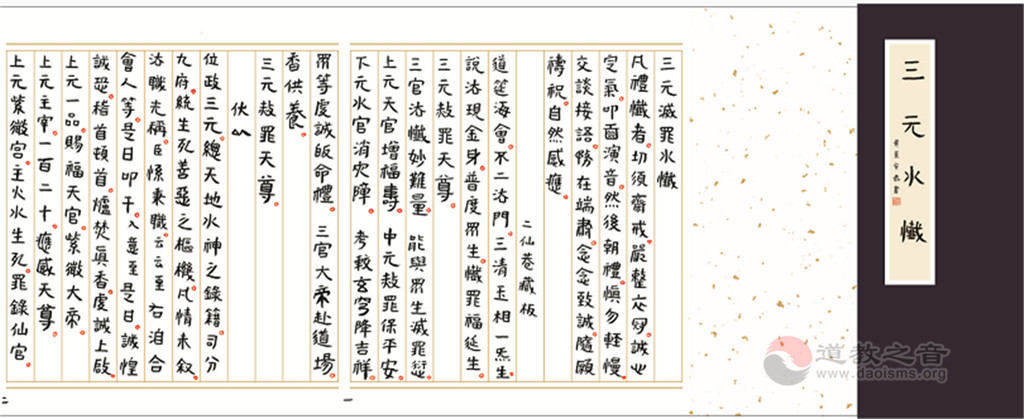 三元水懺
三元滅罪水懺
凡禮懺者切須齋戒嚴整衣冠誠心
定氣叩齒演音然後朝禮慎勿輕慢
交談接語務在端肅念念致誠隨願
禱祝自然感應
二仙菴藏板
道筵海會不二法門三清玉相一炁生
說法現金身普度眾生懺罪福延生
三元赦罪天尊
三官法懺妙難量 能與眾生滅罪愆
上元天官增福壽 中元赦罪保平安
下元水官消災障 考較玄穹降吉祥
眾等虔誠皈命禮 三官大帝赴道場
香供養
三元赦罪天尊
伏以
位政三元總天地水神之錄籍司分
九府統生死善惡之樞機凡情未敘
法職先稱臣係秉職云云至右洎合
會人等是日叩干入意至是日誠惶
誠恐稽首頓首爐焚真香虔誠上啟
上元一品賜福天官紫微大帝
上元主宰一百二十應感天尊
上元紫微宮主火水生死罪錄仙官
一
二
道教之音
www.daoisms.org